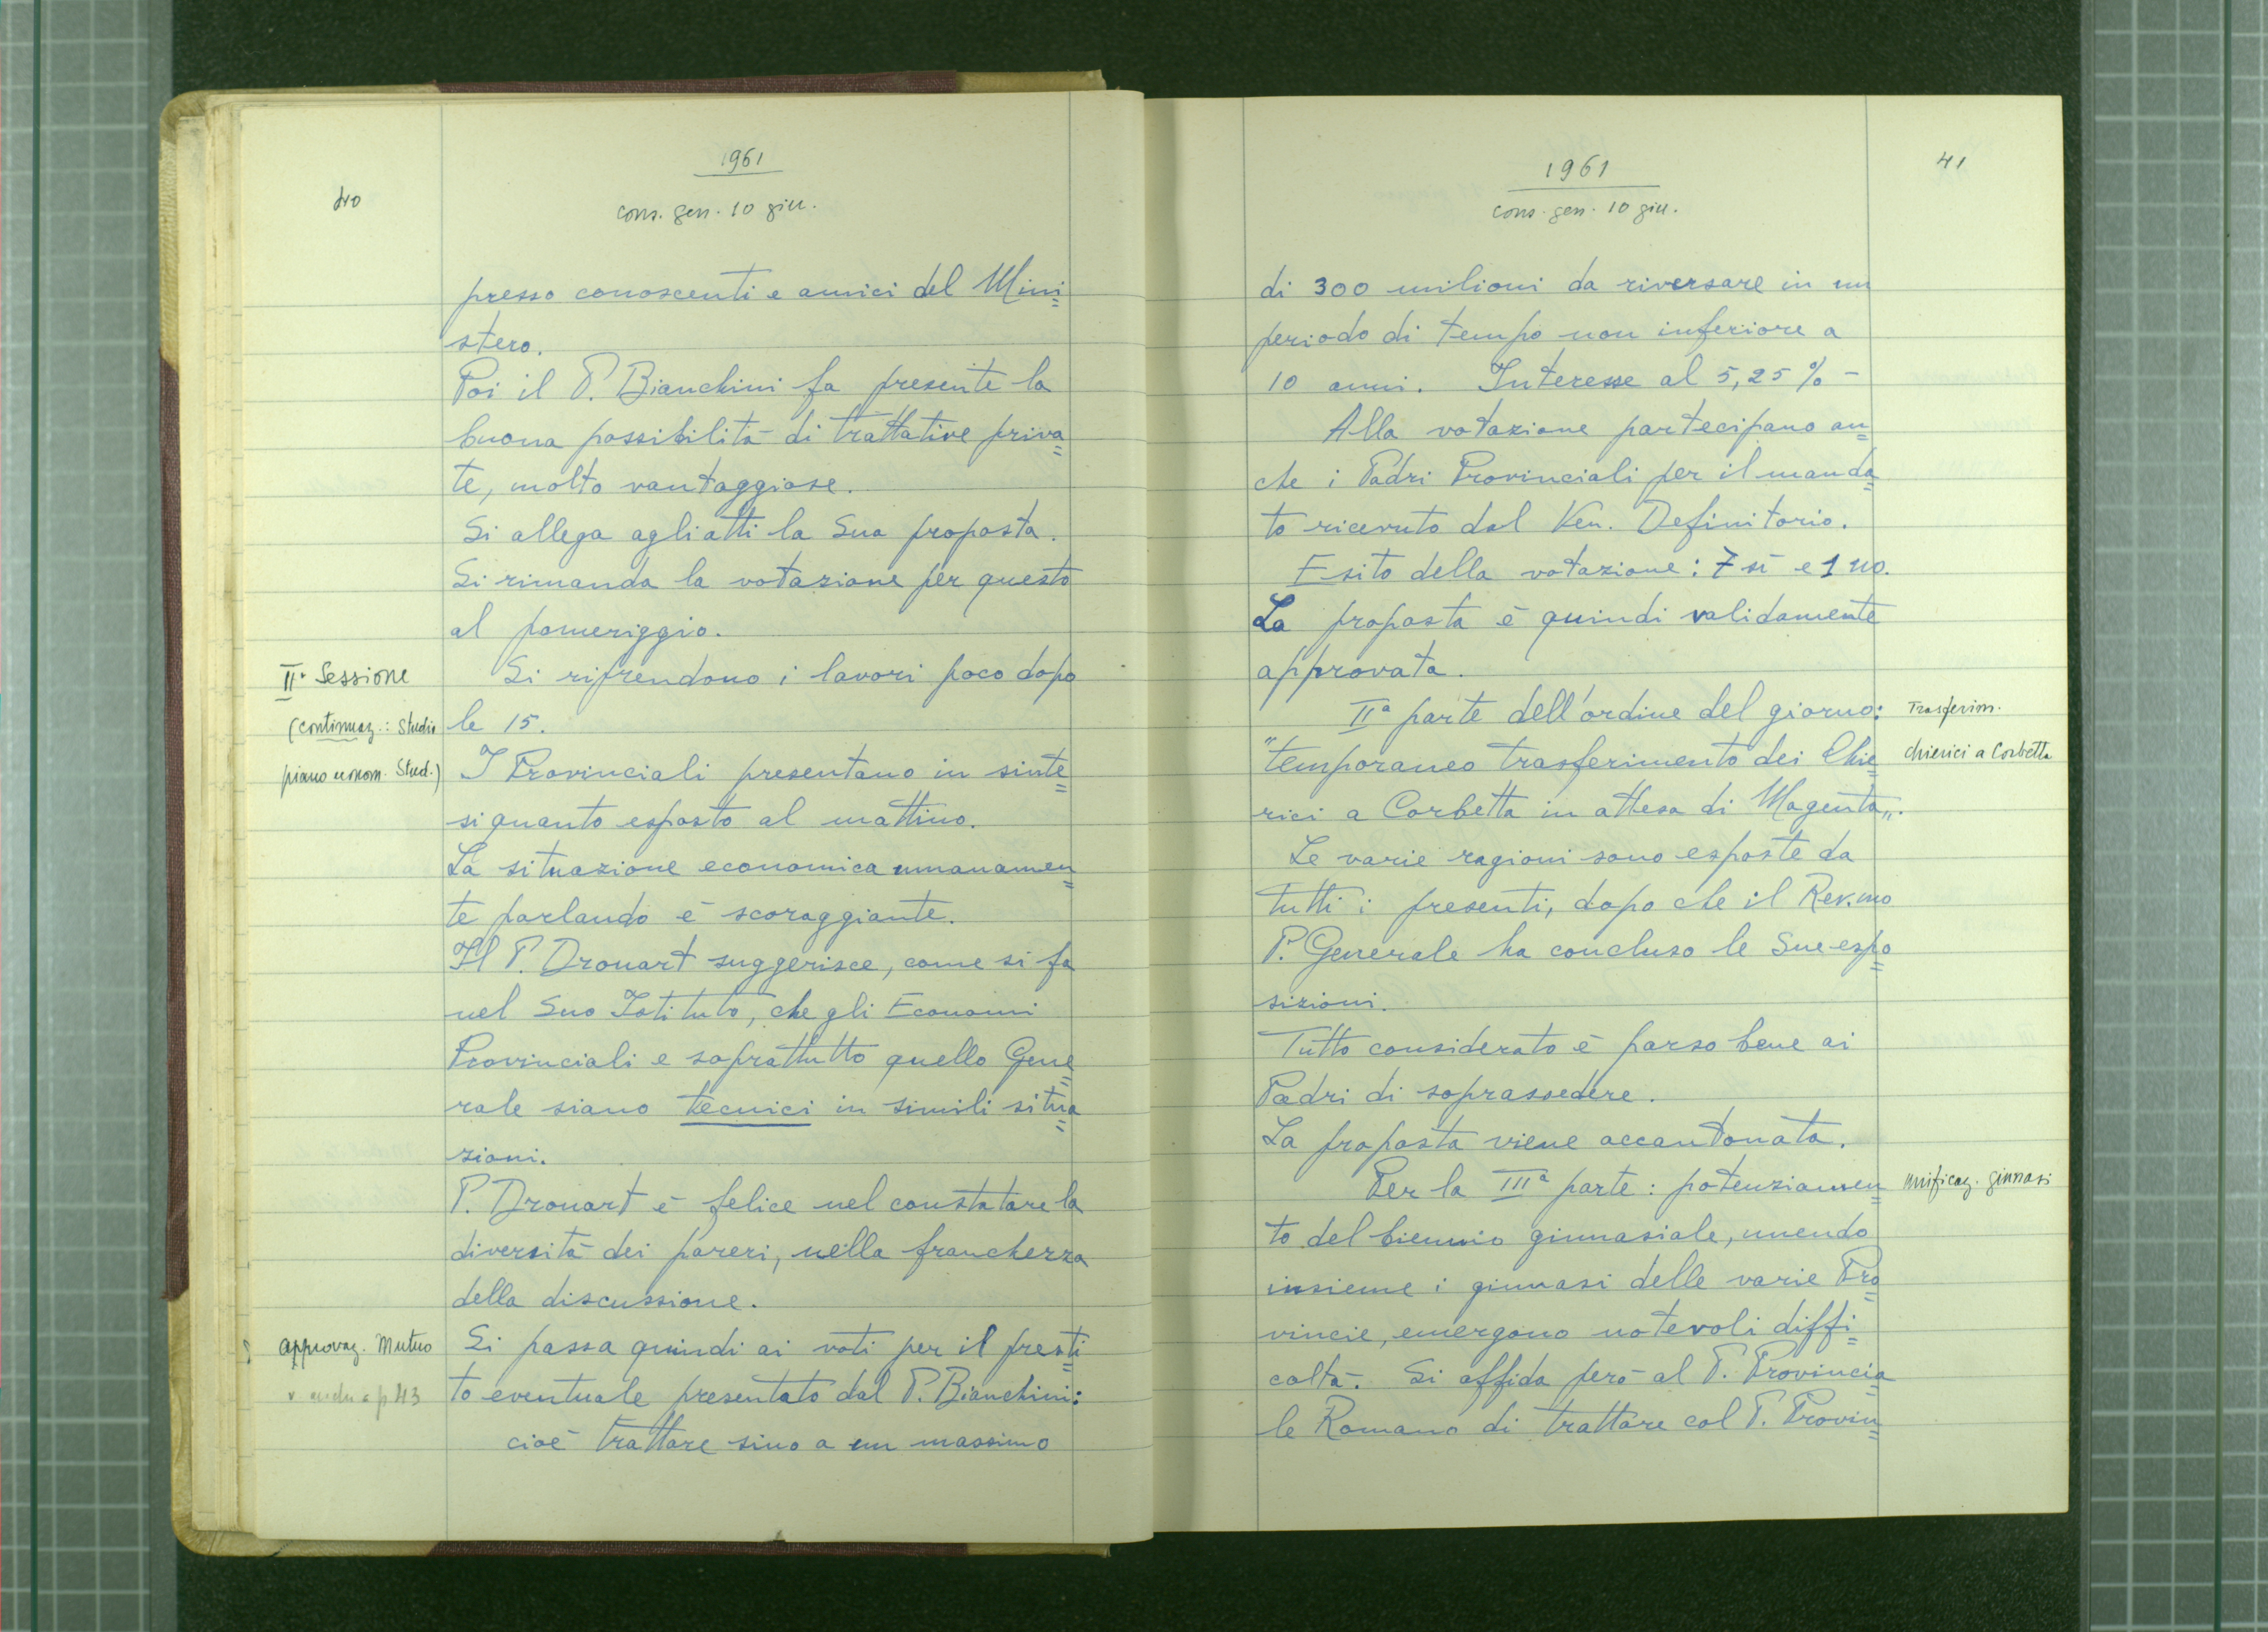 40
1961
cons. gen. 10 giu.
presso conoscenti e amici del Mini=
stero.
Poi il P. Bianchini fa presente la
buona possibilità di trattative priva=
te, molto vantaggiose.
Si allega agli atti la Sua proposta.
Si rimanda la votazione per questo
al pomeriggio.
IIa Sessione
Si riprendono i lavori poco dopo
(continuaz.: Studio
le 15.
piano econom. Stud.)
I Provinciali presentano in sinte=
si quanto esposto al mattino.
La situazione economica umanamen=
te parlando è scoraggiante.
Il P. Drouart suggerisce, come si fa
nel Suo Istituto, che gli Economi
Provinciali e soprattutto quello Gene=
rale siano tecnici in simili situa=
zioni.
P. Drouart è felice nel constatare la
diversità dei pareri, nella franchezza
della discussione.
approvaz. Mutuo
Si passa quindi ai voti per il presti=
v. anche a p. 43
to eventuale presentato dal P. Bianchini:
cioè trattare sino a un massimo
41
1961
cons. gen. 10 giu.
di 300 milioni da riversare in un
periodo di tempo non inferiore a
10 anni. Interesse al 5,25 % -
Alla votazione partecipano an=
che i Padri Provinciali per il manda=
to ricevuto dal Ven. Definitorio.
Esito della votazione: 7 sì e 1 no.
La proposta è quindi validamente
approvata.
IIa parte dell'ordine del giorno:
Trasferim.
"temporaneo trasferimento dei Chie=
chierici a Corbetta
rici a Corbetta in attesa di Magenta".
Le varie ragioni sono esposte da
tutti i presenti, dopo che il Rev.mo
P. Generale ha concluso le Sue espo=
sizioni.
Tutto considerato è parso bene ai
Padri di soprassedere.
La proposta viene accantonata.
Per la IIIa parte: potenziamen=
unificaz. ginnasi
to del biennio ginnasiale, unendo
insieme i ginnasi delle varie Pro=
vincie, emergono notevoli diffi=
coltà. Si affida però al P. Provincia=
le Romano di trattare col P. Provin=